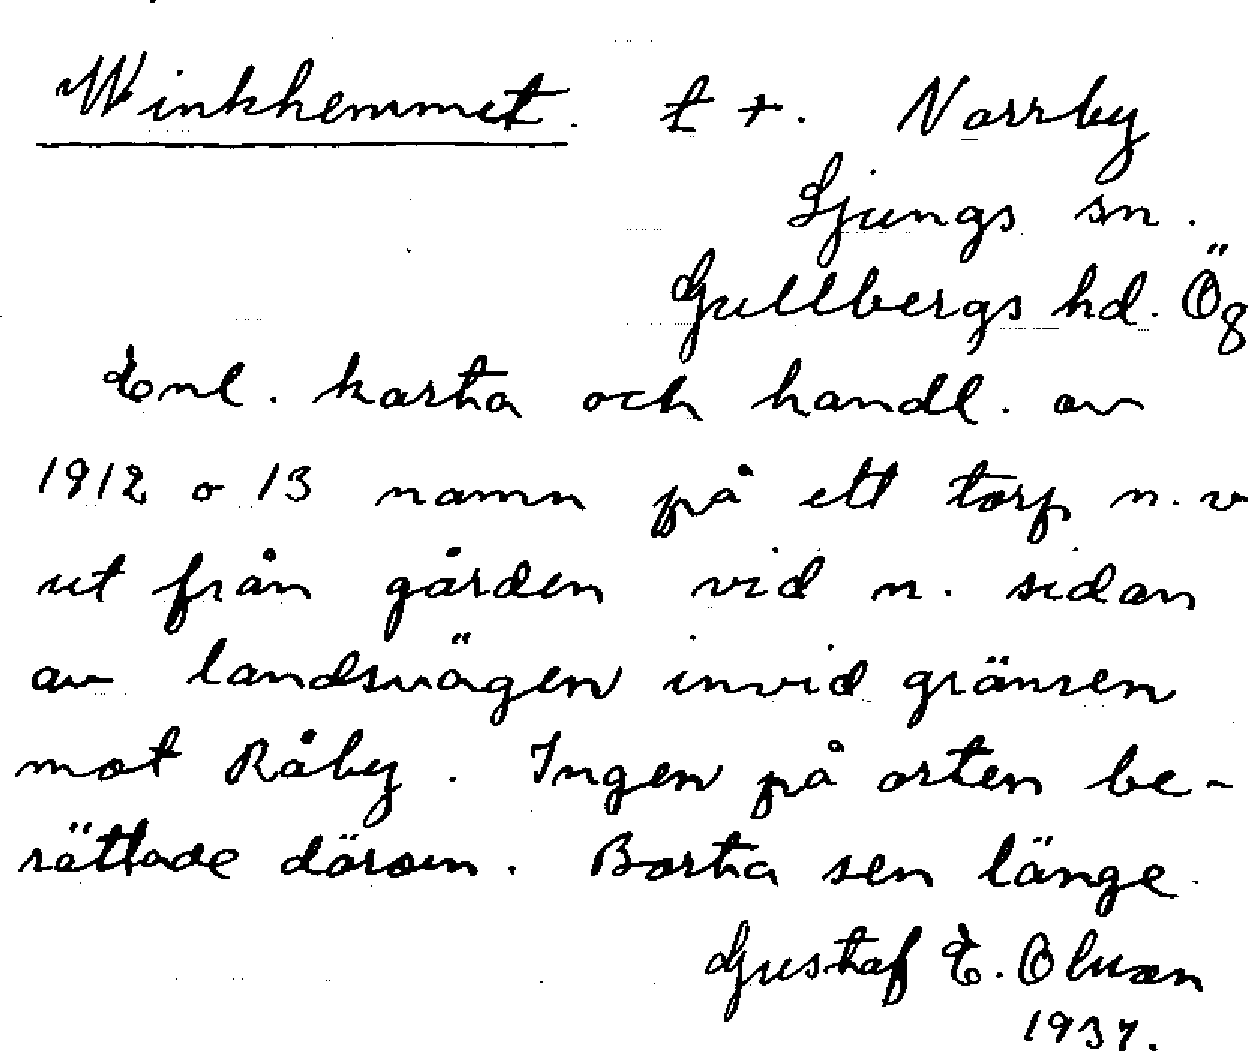 Winkhemmet. t +. Norrby
Ljungs sn.
Gullbergs hd. Ög
Enl. karta och handl. av
1912 o 13 namn på ett torp n.v
ut från gården vid n. sidan
av landsvägen invid gränsen
mot Råby. Ingen på orten be-
rättade därom. Borta sen länge.
Gustaf E. Olsson
1937.